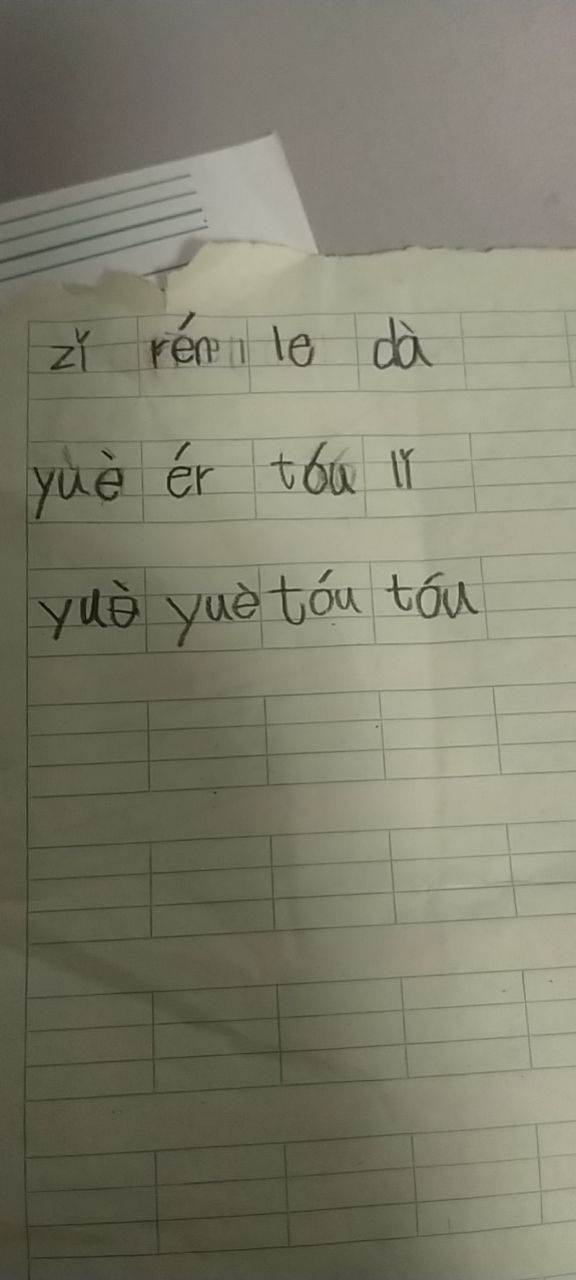 zǐ rén le dà
yuè ér tóu lǐ
yuè yuè tóu tóu